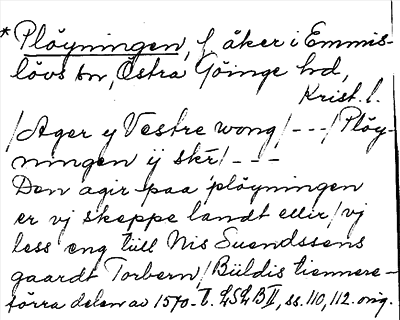 *Plöyningen, f. åker i Emmis-
lövs sn, Östra Göinge hd,
Krist. l.
/Ager y Vestre wong/---/Plöy-
ningen ÿ skr/---
Den agir paa plöyningen
er vj skeppe landt ellir/vj
less eng tüll Nis Suendssens
gaardt Torbern/Büldis tiennere-
förra delen av 1570-t. LSLB II, ss. 110, 112. orig.